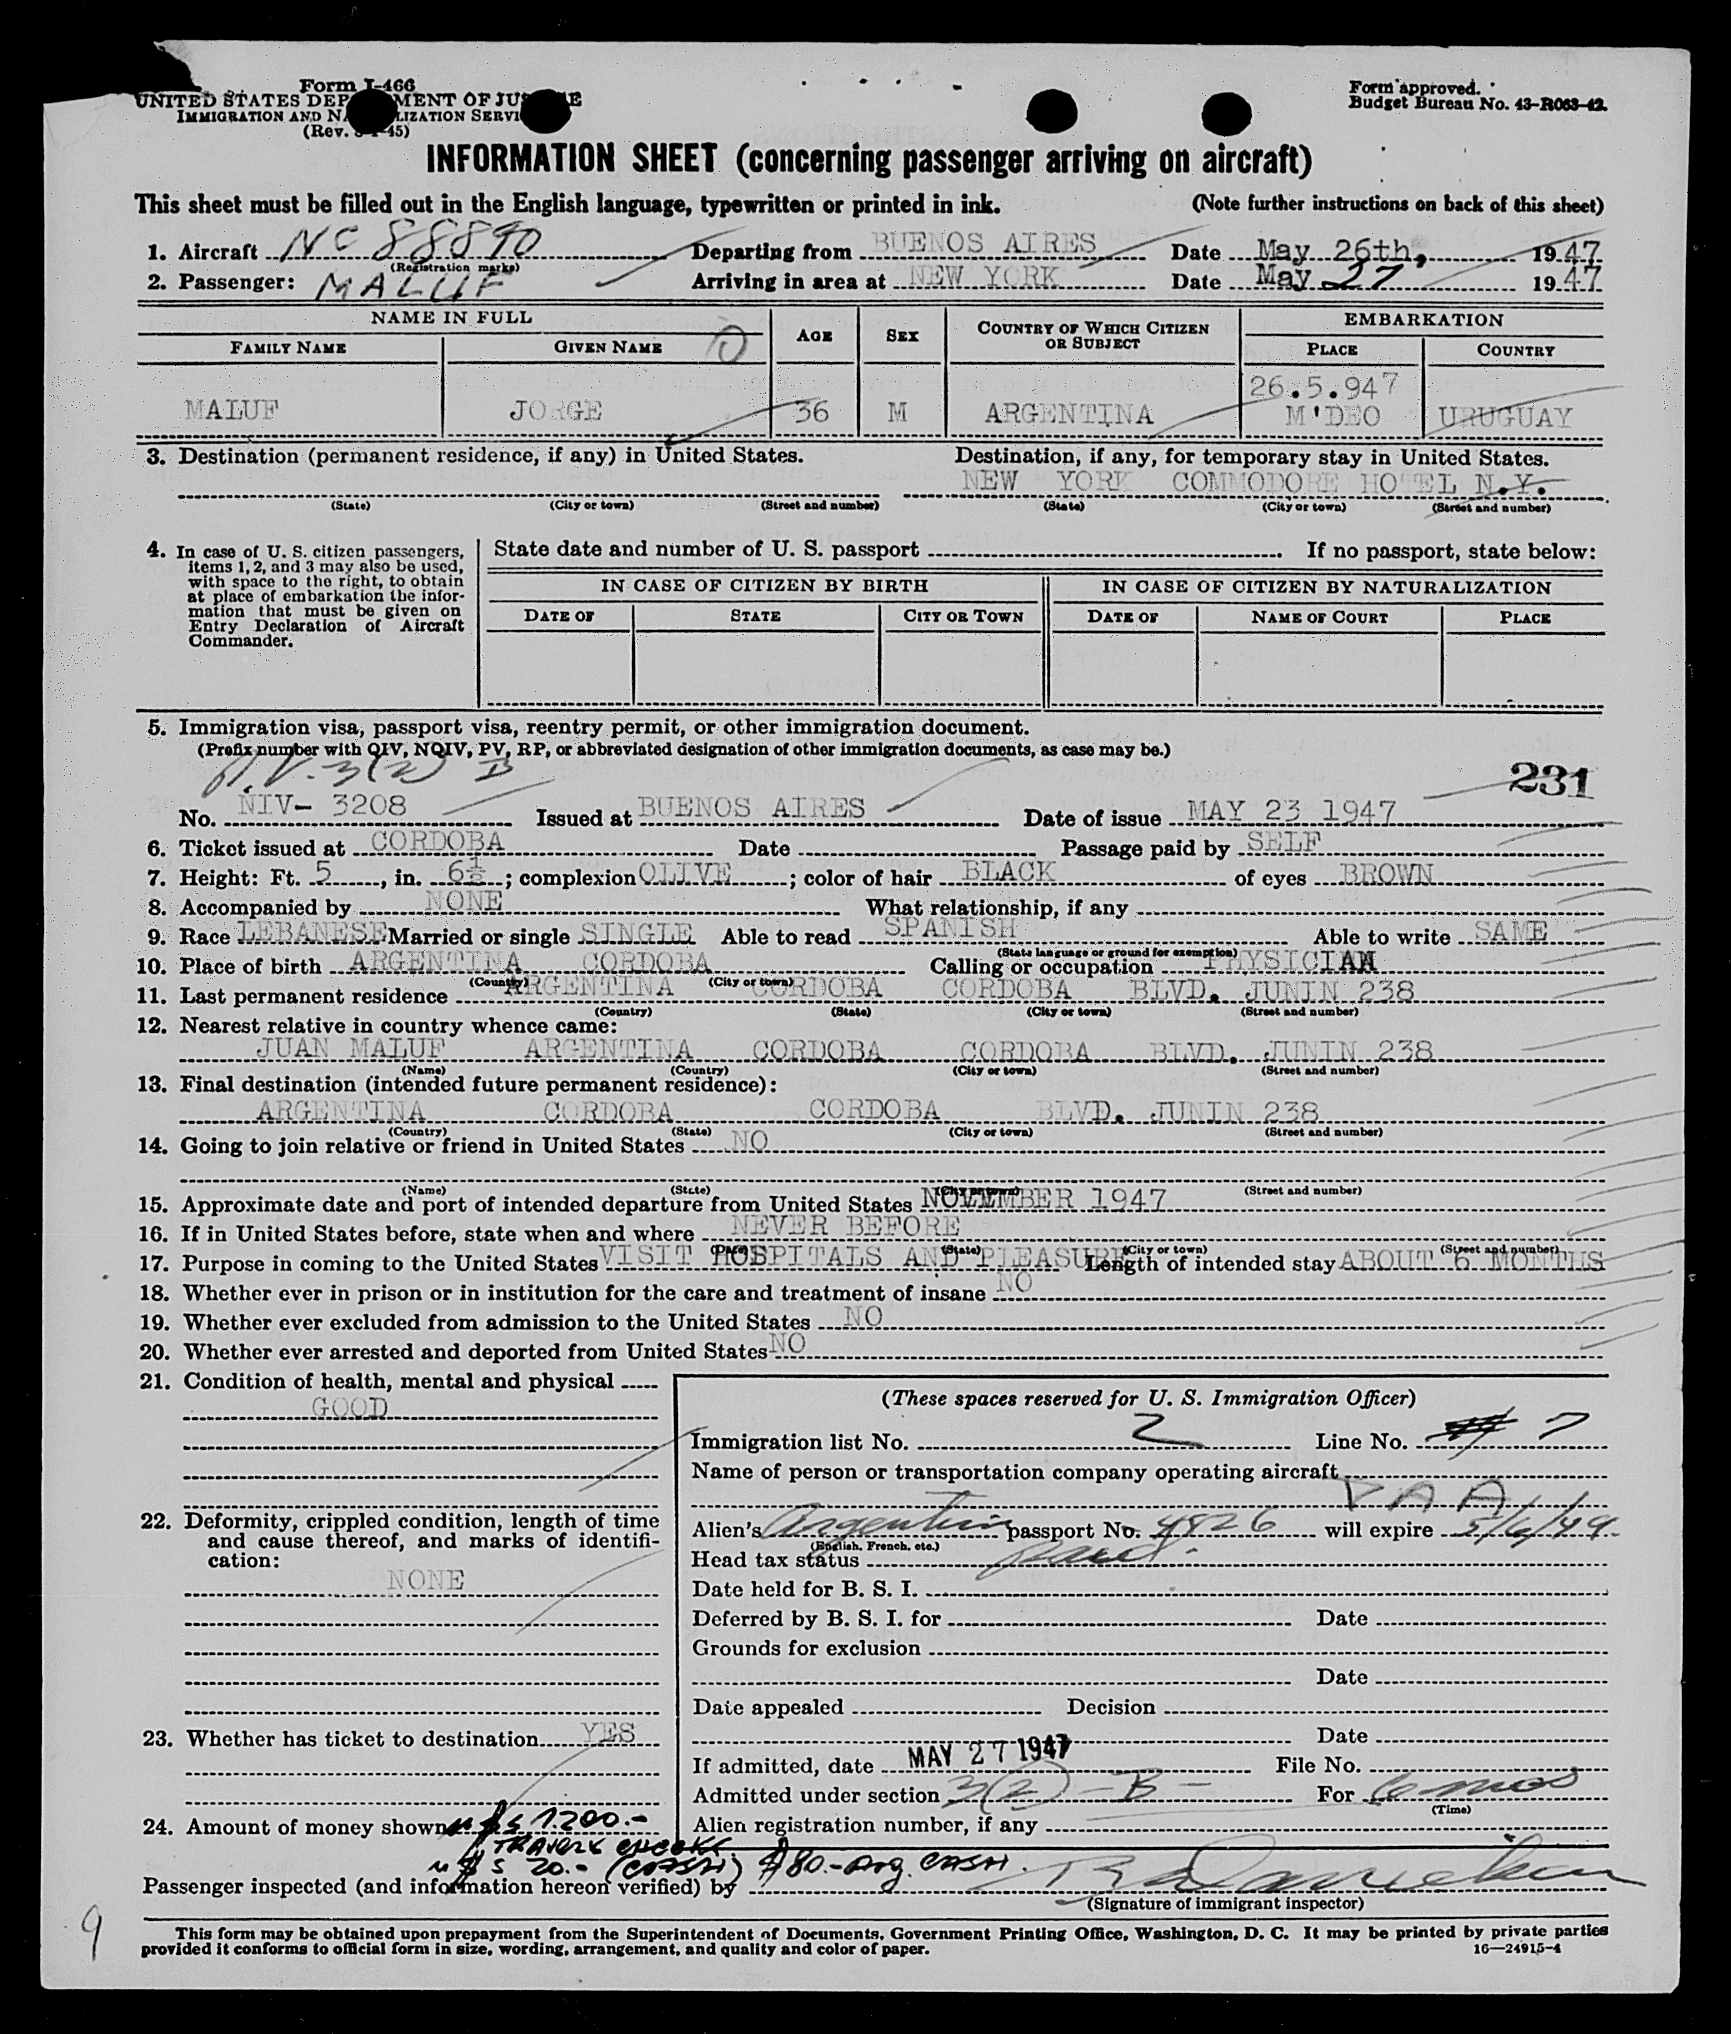 Form I-466
UNITED STATES DEPARTMENT OF JUSTICE
IMMIGRATION AND NATURALIZATION SERVICE
(Rev. 8-1-45)
Form approved.
Budget Bureau No. 43-R063-42.
INFORMATION SHEET (concerning passenger arriving on aircraft)
This sheet must be filled out in the English language, typewritten or printed in ink. (Note further instructions on back of this sheet)
1. Aircraft NC 88890 Departing from BUENOS AIRES Date May 26th, 1947
(Registration marks)
2. Passenger: MALUF Arriving in area at NEW YORK Date May 27 1947
NAME IN FULL AGE SEX COUNTRY OF WHICH CITIZEN OR SUBJECT EMBARKATION
FAMILY NAME GIVEN NAME PLACE COUNTRY
26.5.947
MALUF JORGE 36 M ARGENTINA M'DEO URUGUAY
3. Destination (permanent residence, if any) in United States. Destination, if any, for temporary stay in United States.
NEW YORK COMMODORE HOTEL N.Y.
(State) (City or town) (Street and number) (State) (City or town) (Street and number)
4. In case of U. S. citizen passengers, items 1, 2, and 3 may also be used, with space to the right, to obtain at place of embarkation the information that must be given on Entry Declaration of Aircraft Commander.
State date and number of U. S. passport If no passport, state below:
IN CASE OF CITIZEN BY BIRTH IN CASE OF CITIZEN BY NATURALIZATION
DATE OF STATE CITY OR TOWN DATE OF NAME OF COURT PLACE
5. Immigration visa, passport visa, reentry permit, or other immigration document.
(Prefix number with QIV, NQIV, PV, RP, or abbreviated designation of other immigration documents, as case may be.)
P.V. 3(2) B
231
No. NIV- 3208 Issued at BUENOS AIRES Date of issue MAY 23 1947
6. Ticket issued at CORDOBA Date Passage paid by SELF
7. Height: Ft. 5, in. 6½; complexion OLIVE; color of hair BLACK of eyes BROWN
8. Accompanied by NONE What relationship, if any
9. Race LEBANESE Married or single SINGLE Able to read SPANISH Able to write SAME
(State language or ground for exemption)
10. Place of birth ARGENTINA CORDOBA Calling or occupation PHYSICIAN
(Country) (City or town)
11. Last permanent residence ARGENTINA CORDOBA CORDOBA BLVD. JUNIN 238
(Country) (State) (City or town) (Street and number)
12. Nearest relative in country whence came:
JUAN MALUF ARGENTINA CORDOBA CORDOBA BLVD. JUNIN 238
(Name) (Country) (City or town) (Street and number)
13. Final destination (intended future permanent residence):
ARGENTINA CORDOBA CORDOBA BLVD. JUNIN 238
(Country) (State) (City or town) (Street and number)
14. Going to join relative or friend in United States NO
(Name) (State) (City or town) (Street and number)
15. Approximate date and port of intended departure from United States NOVEMBER 1947
16. If in United States before, state when and where NEVER BEFORE
(Date) (State) (City or town) (Street and number)
17. Purpose in coming to the United States VISIT HOSPITALS AND PLEASURE Length of intended stay ABOUT 6 MONTHS
18. Whether ever in prison or in institution for the care and treatment of insane NO
19. Whether ever excluded from admission to the United States NO
20. Whether ever arrested and deported from United States NO
21. Condition of health, mental and physical
GOOD
(These spaces reserved for U. S. Immigration Officer)
Immigration list No. 2 Line No. 7
Name of person or transportation company operating aircraft
PAA
22. Deformity, crippled condition, length of time and cause thereof, and marks of identification:
NONE
Alien's Argentin passport No. 4826 will expire 5/6/49.
(English, French, etc.)
Head tax status paid.
Date held for B. S. I.
Deferred by B. S. I. for Date
Grounds for exclusion
Date
Date appealed Decision
23. Whether has ticket to destination YES
Date
If admitted, date MAY 27 1947 File No.
Admitted under section 3(2)-B- For 6 mos
(Time)
24. Amount of money shown u$s 1.200.-
Alien registration number, if any
TRAVELS CHECKS.
u$s 20.- (CASH) $80.- Arg. CASH.
Passenger inspected (and information hereon verified) by
(Signature of immigrant inspector)
9
This form may be obtained upon prepayment from the Superintendent of Documents, Government Printing Office, Washington, D. C. It may be printed by private parties
provided it conforms to official form in size, wording, arrangement, and quality and color of paper. 16—24915-4